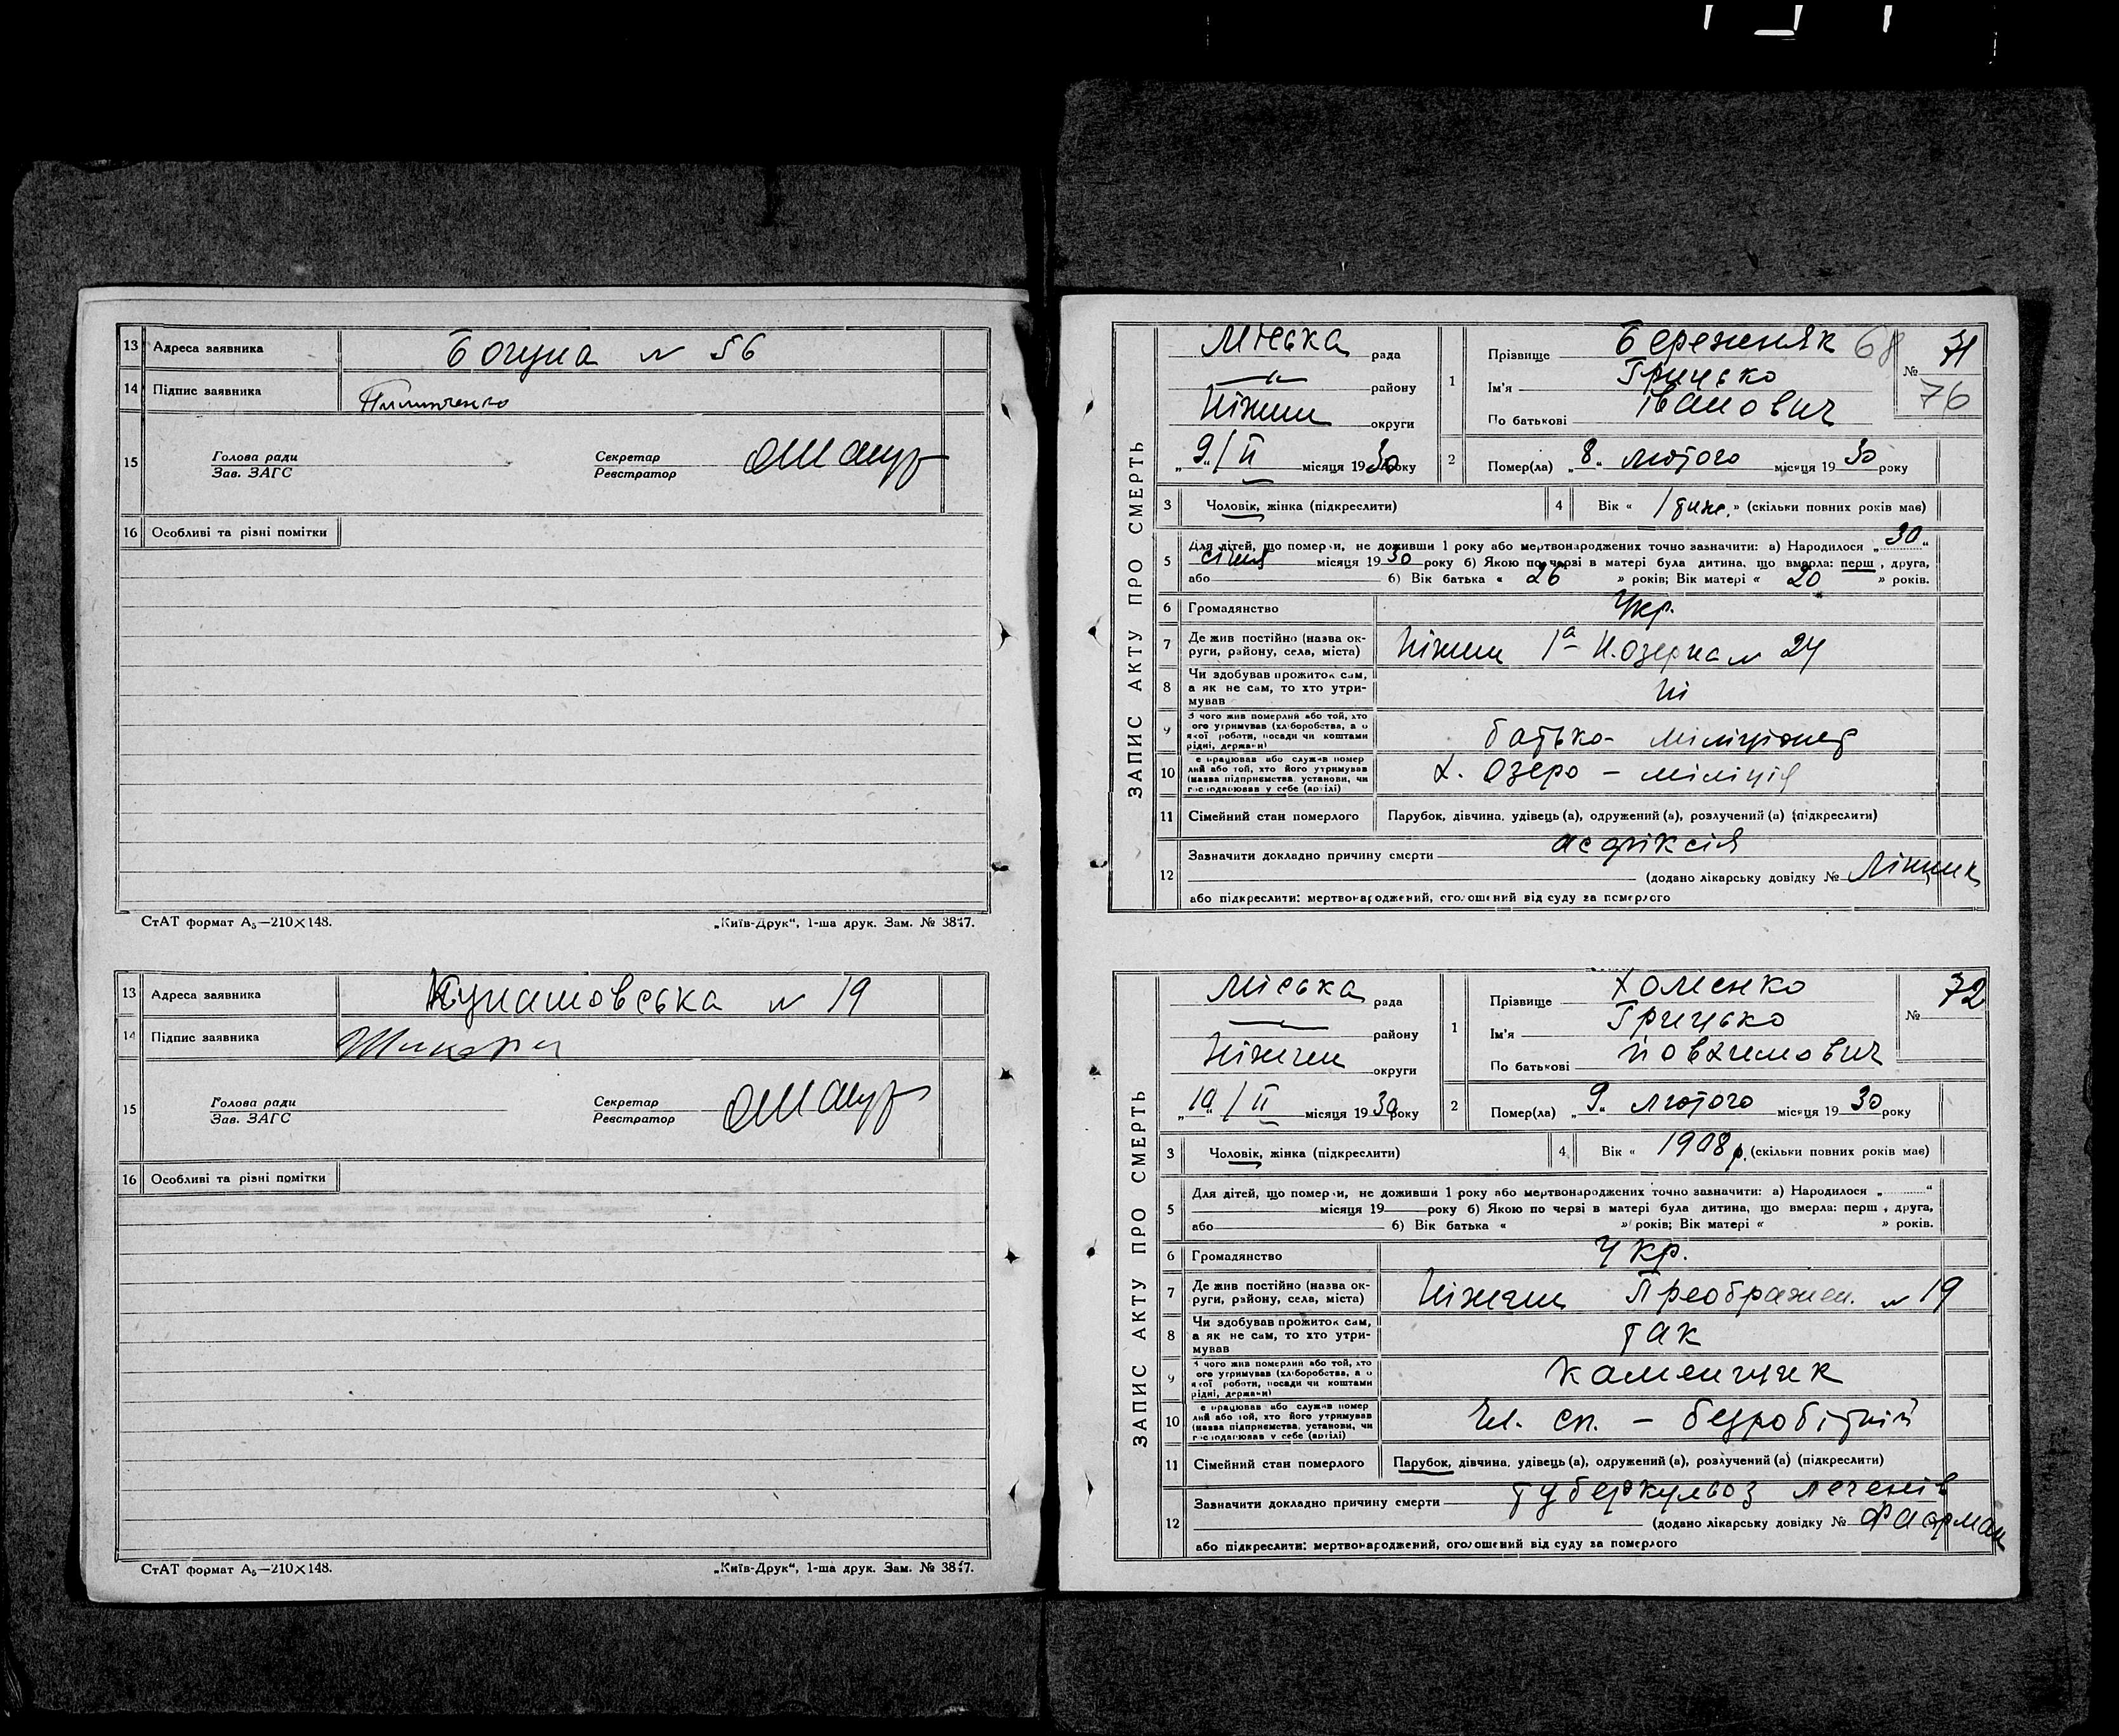 13 Адреса заявника Богуна № 56
14 Підпис заявника Пилипченко
15 Голова ради
Зав. ЗАГС
Секретар
Реєстратор
16 Особливі та різні помітки
СтАТ формат А₅—210×148. „Київ-Друк“, 1-ша друк. Зам. № 3847.
13 Адреса заявника Кунашовська № 19
14 Підпис заявника
15 Голова ради
Зав. ЗАГС
Секретар
Реєстратор
16 Особливі та різні помітки
СтАТ формат А₅—210×148. „Київ-Друк“, 1-ша друк. Зам. № 3847.
ЗАПИС АКТУ ПРО СМЕРТЬ
Міська рада
району
Ніжин округи
„9“/II місяця 1930 року
1 Прізвище Береженяк 68
Ім'я Грицько
По батькові Іванович
№ 71
76
2 Помер(ла) „8“ лютого місяця 1930 року
3 Чоловік, жінка (підкреслити)
4 Вік « 1 тиж. » (скільки повних років має)
5 Для дітей, що померли, не доживши 1 року або мертвонароджених точно зазначити: а) Народилося „30“
січня місяця 1930 року б) Якою по черзі в матері була дитина, що вмерла: перш , друга,
або б) Вік батька « 26 » років; Вік матері « 20 » років.
6 Громадянство Укр.
7 Де жив постійно (назва ок-
руги, району, села, міста) Ніжин 1а Н.Озерна № 24
8 Чи здобував прожиток сам,
а як не сам, то хто утри-
мував Ні
9 З чого жив померлий або той, хто
ого утримував (хліборобства, а о
якої роботи, посади чи коштами
рідні, держави) батько- міліціонер
10 е працював або служив помер
лий або той, хто його утримував
(назва підприємства, установи, чи
господарював у себе (артілі) Х. Озеро – міліція
11 Сімейний стан померлого Парубок, дівчина, удівець (а), одружений (а), розлучений (а) (підкреслити)
12 Зазначити докладно причину смерти асфіксія
(додано лікарську довідку №
або підкреслити: мертвонароджений, оголошений від суду за померлого
ЗАПИС АКТУ ПРО СМЕРТЬ
Міська рада
району
Ніжин округи
„10“/II місяця 1930 року
1 Прізвище Хоменко
Ім'я Грицько
По батькові Йовхимович
№ 72
2 Помер(ла) „9“ лютого місяця 1930 року
3 Чоловік, жінка (підкреслити)
4 Вік « 1908 р. (скільки повних років має)
5 Для дітей, що померли, не доживши 1 року або мертвонароджених точно зазначити: а) Народилося „ “
місяця 19 року б) Якою по черзі в матері була дитина, що вмерла: перш , друга,
або б) Вік батька « » років; Вік матері « » років.
6 Громадянство Укр.
7 Де жив постійно (назва ок-
руги, району, села, міста) Ніжин Преображен. № 19
8 Чи здобував прожиток сам,
а як не сам, то хто утри-
мував так
9 З чого жив померлий або той, хто
ого утримував (хліборобства, а о
якої роботи, посади чи коштами
рідні, держави) каменщик
10 е працював або служив помер
лий або той, хто його утримував
(назва підприємства, установи, чи
господарював у себе (артілі) Чл. сп. – безробітній
11 Сімейний стан померлого Парубок, дівчина, удівець (а), одружений (а), розлучений (а) (підкреслити)
12 Зазначити докладно причину смерти туберкульоз легенів
(додано лікарську довідку №
або підкреслити: мертвонароджений, оголошений від суду за померлого